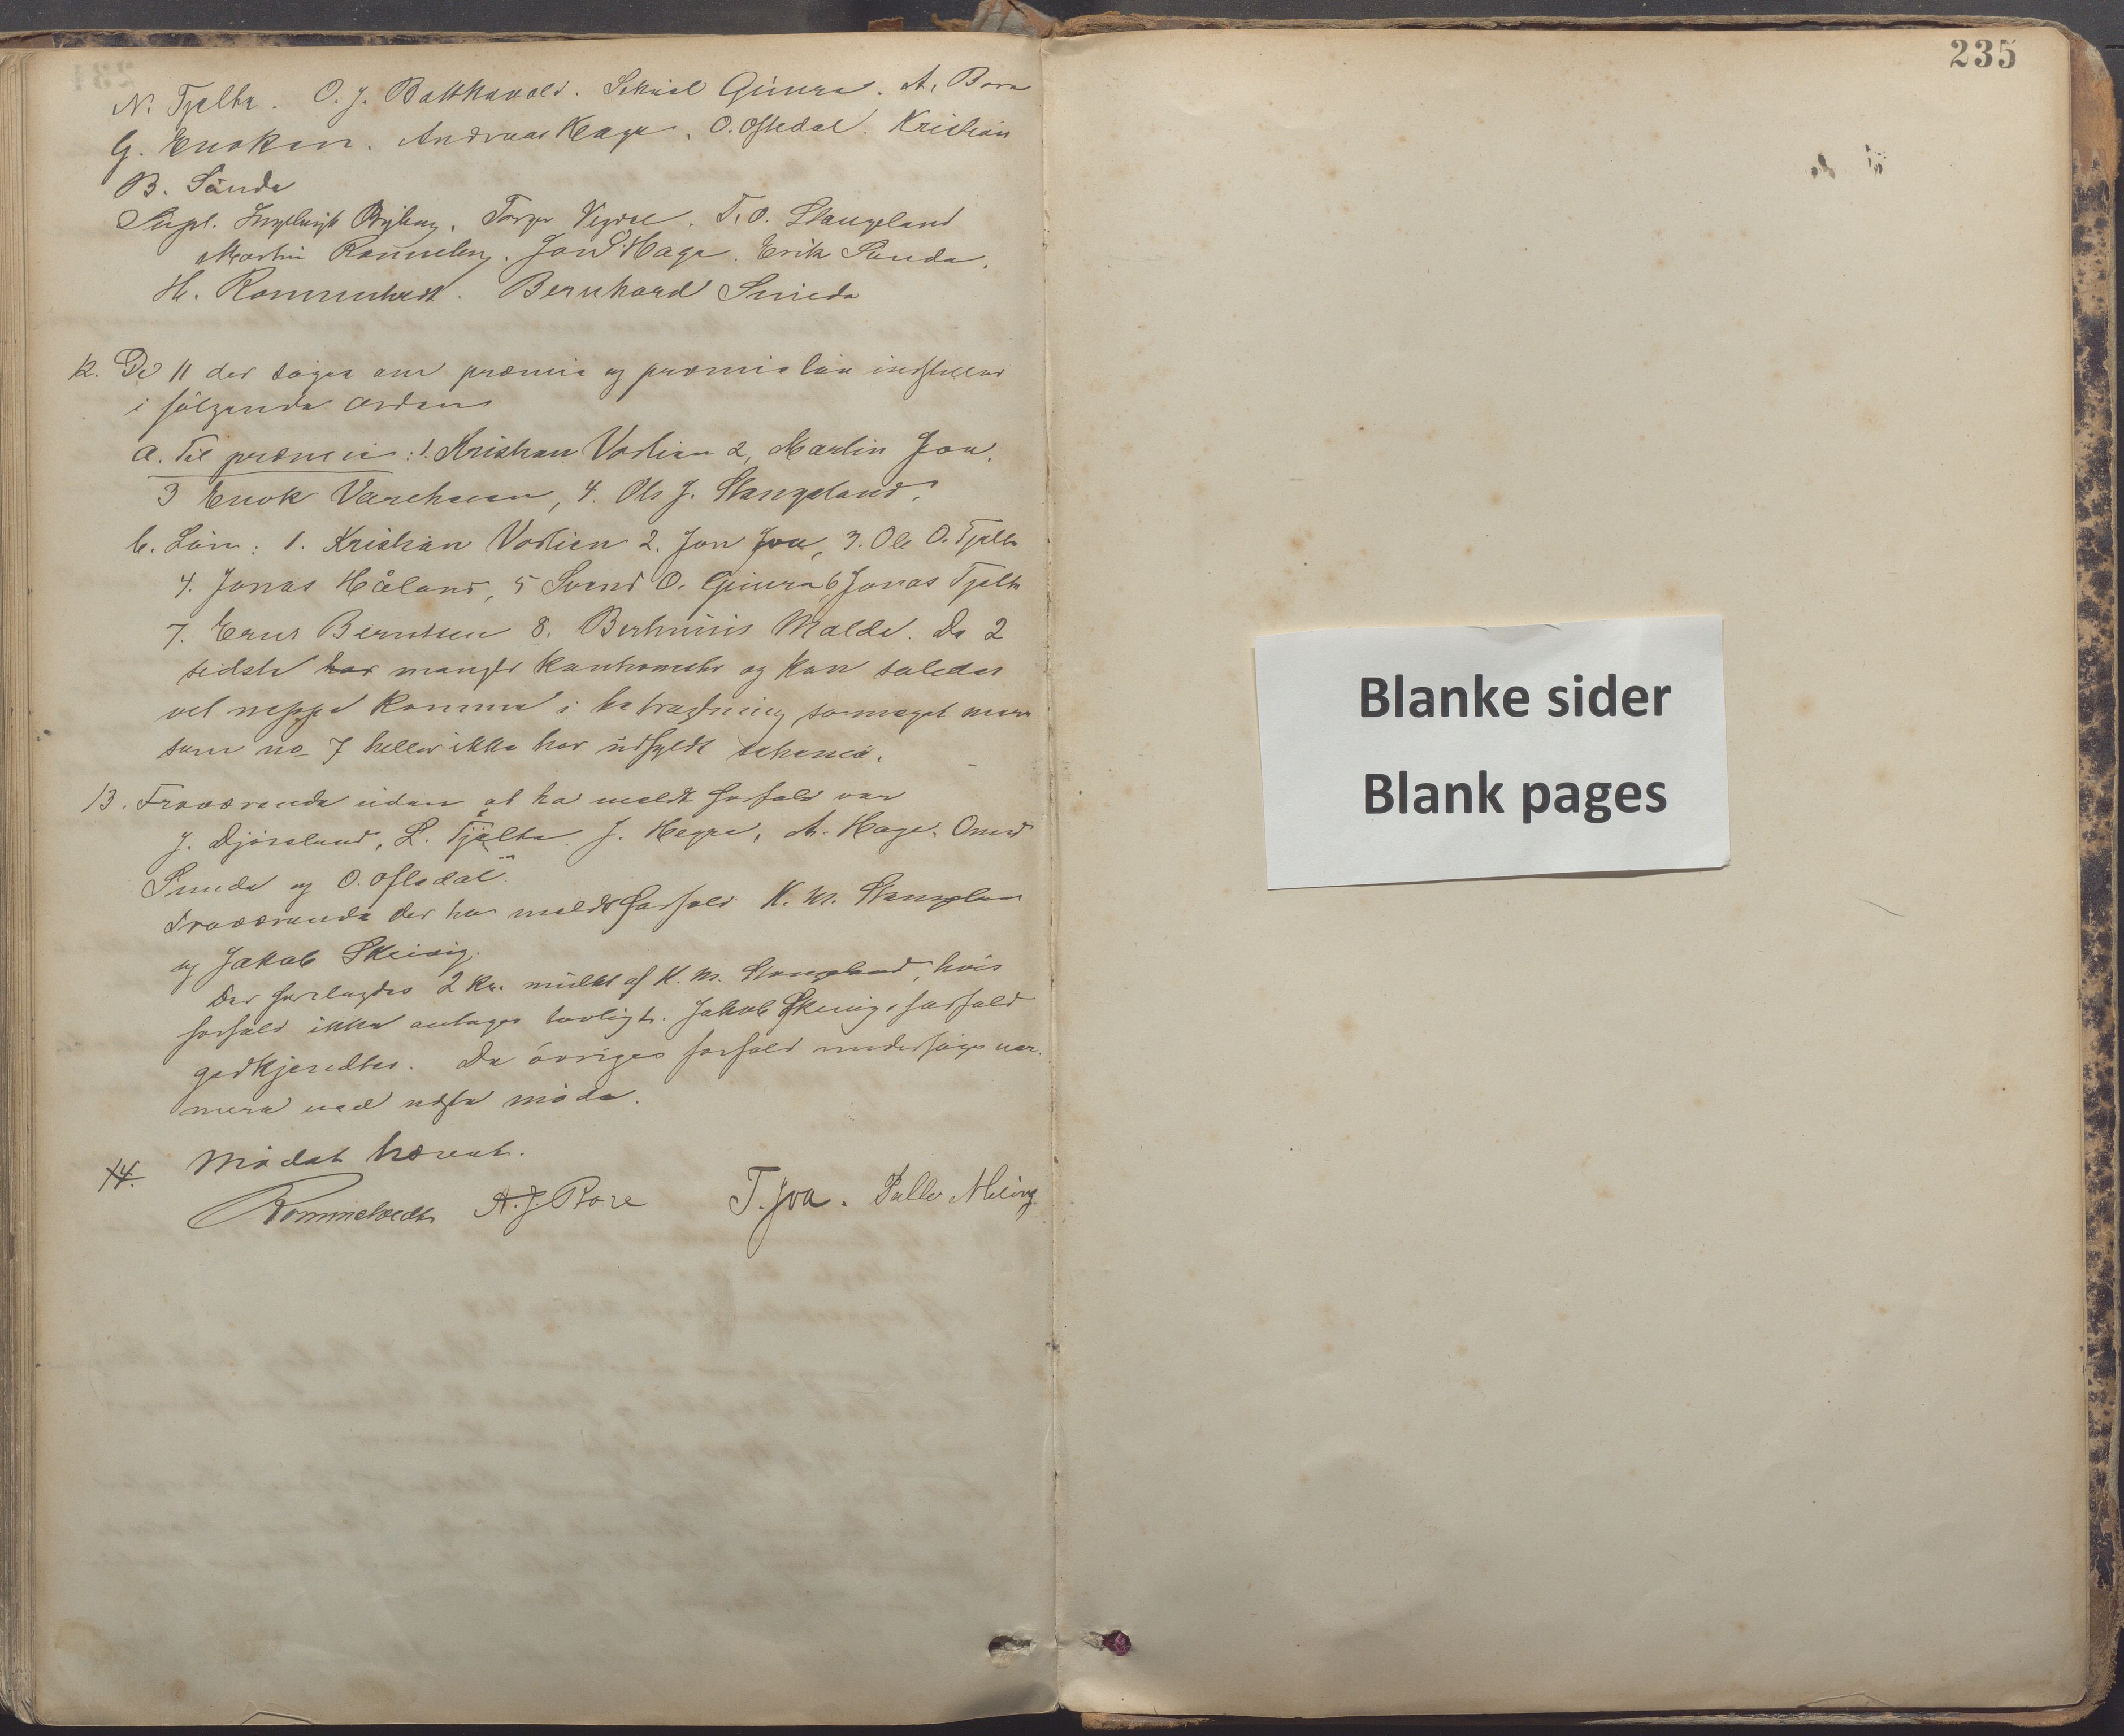 N. Tjelta. O. J. Botthavold. Gimra. A. Bore
G. Enoksen. Andreas Hage. O. Oftedal. Kristian
B. Sunde
Supl. Byberg. Torger Vigdel. T. O. Stangeland
Martin Jon Haga. Erik Sunde.
H. Rommetvedt. Bernhard Sunde
12. De 11 der søger om præmie og præmielån indstilles
i følgende orden
a. Til præmie: 1. Kristian Vorlien 2, Martin Joa.
3 Enok Varehaun, 4. Ole J. Stangeland.
b. Lån: 1. Kristian Vorlien 2. Jon Joa, 3. Ole O. Tjelta
4. Jonas Håland, 5 Svend O. Gimra 6 Jonas Tjelta
7. Berntsen 8. Malde. De 2
sidste har mangler og kan saledes
vel neppe komme i betragtning saameget mere
som no 7 heller ikke har udfyldt schema.
13. Fraværende uden at ha meldt forfald var
J. Djorsland, L. Tjelta. J. Hegre, A. Hage. Omund
Sunde og O. Oftedal.
Fraværende der har meldt forfald K. M. Stangeland
og Jakob Skeivig.
Der forelagdes 2 kr. mulkt af K. M. Stangeland, hvis
forfald ikke antages lovligt. Jakob Skeivigs forfald
godkjendtes. De øvriges forfald undersøges nær-
mere ved næste møde.
14. Mødet hævet.
Rommetvedt A. J. Bore T. Joa. Palle Meling
235
Blanke sider
Blank pages